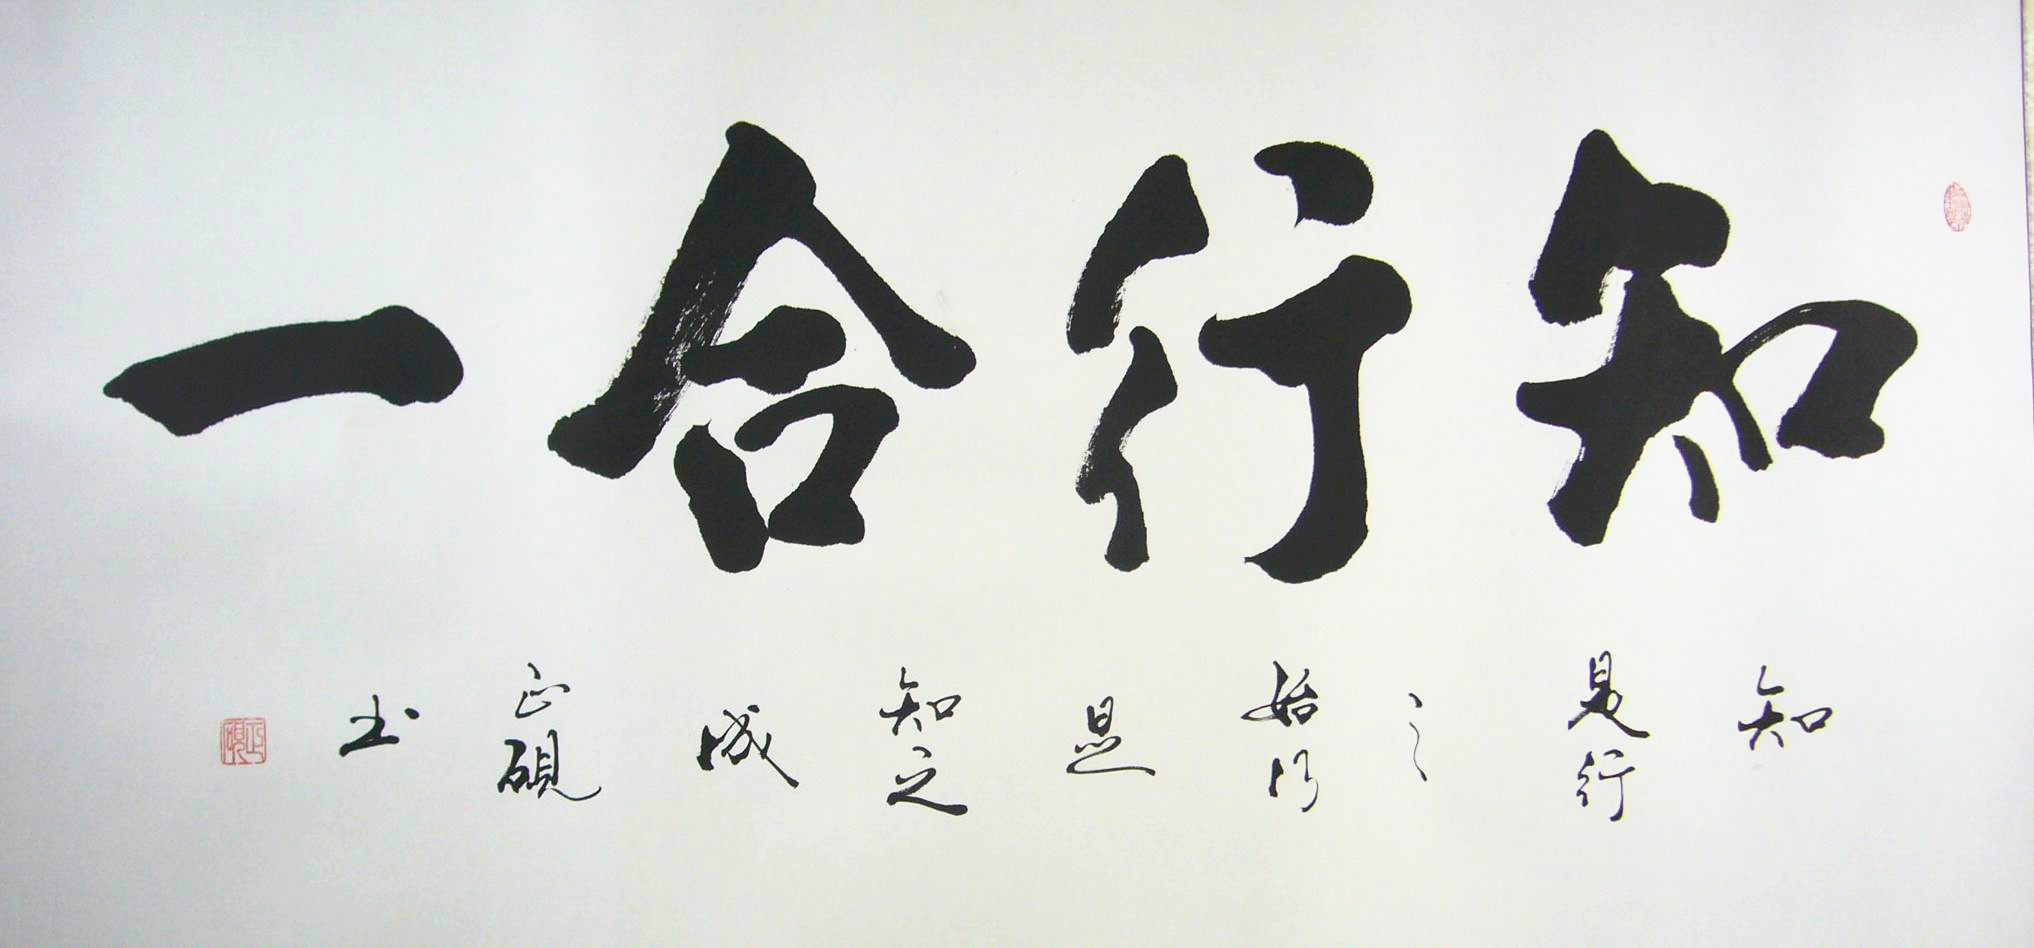 知行合一
知是行之始行是知之成
正硯书
正硯